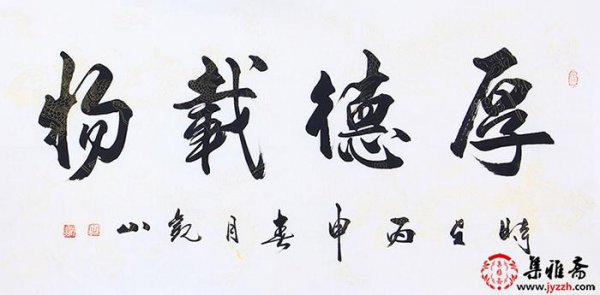 厚德載物
時丙申春月觀山
集雅斋
www.jyzzh.com